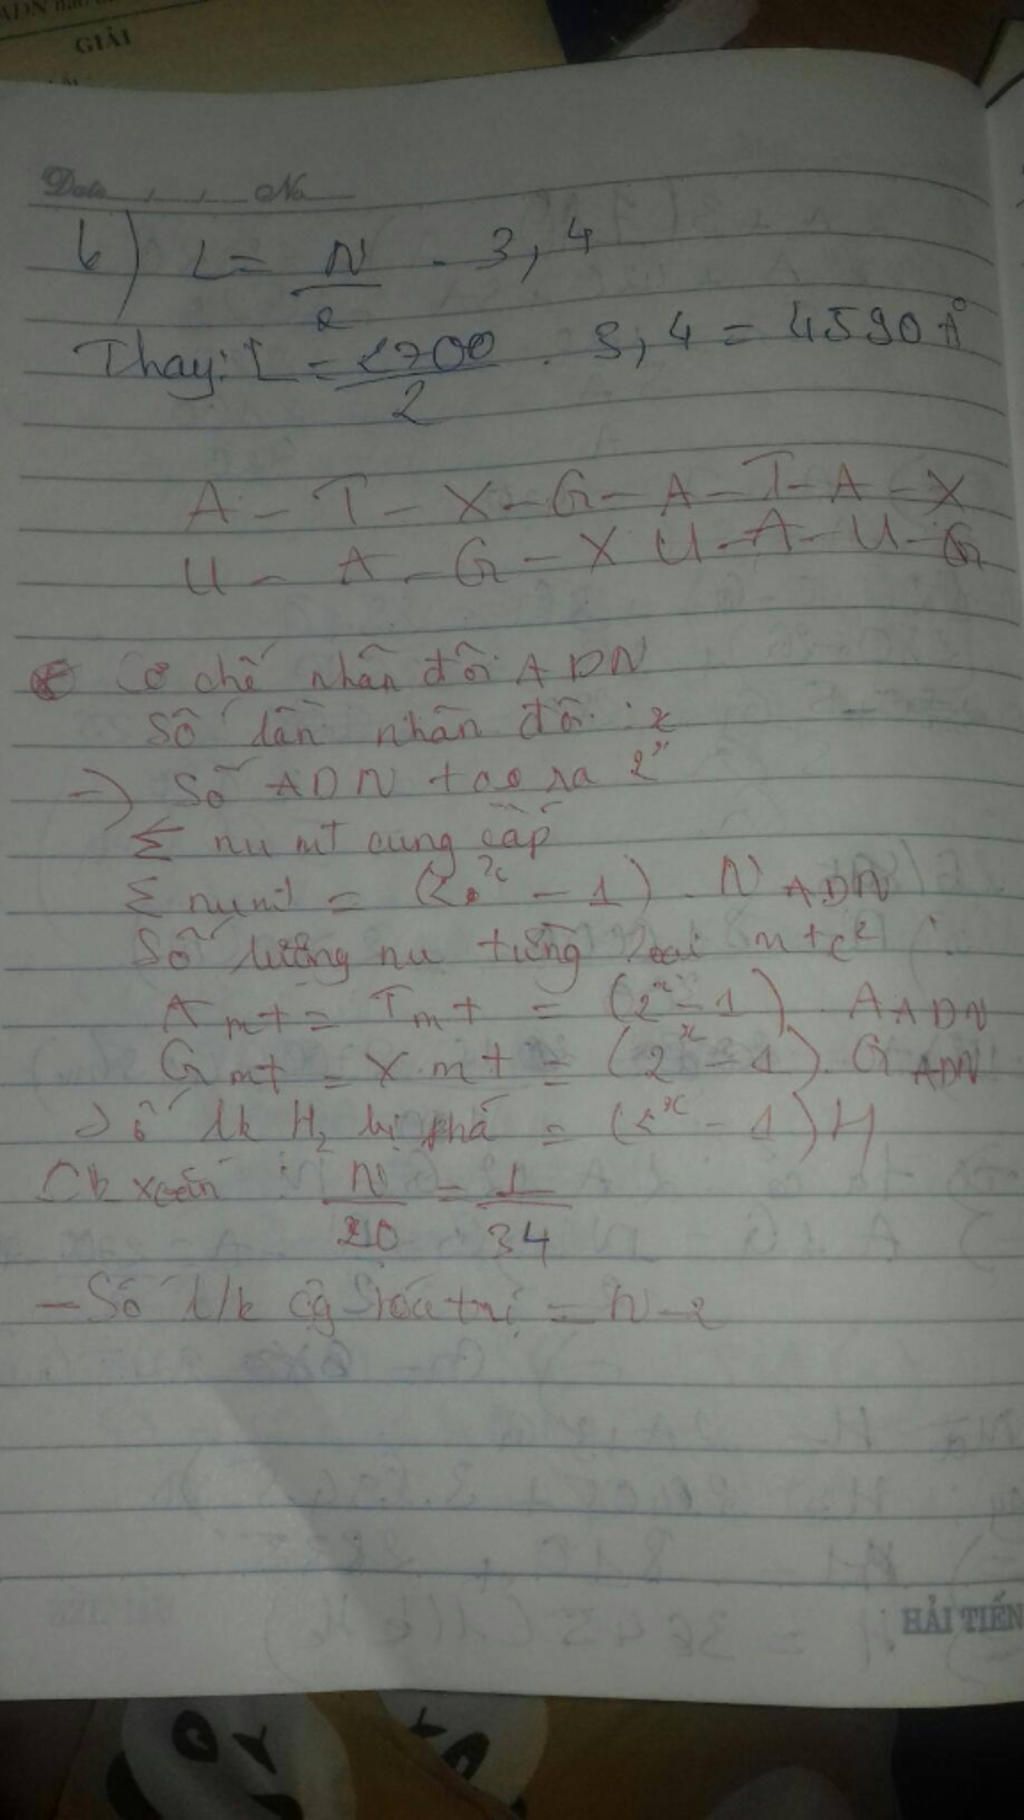 GIẢI
Date No
b) L = N/2 . 3,4
Thay: L = 2700/2 . 3,4 = 4590 Å
A - T - X - G - A - T - A - X
U - A - G - X U - A - U - G
Cơ chế nhân đôi ADN
Số lần nhân đôi : x
=) Số ADN tạo ra 2^x
Σ nu mt cung cấp
Σ nu mt = (2^x - 1) . N ADN
Số lường nu từng loại mtc² :
A mt = T mt = (2^x - 1) . A ADN
G mt = X mt = (2^x - 1) . G ADN
Số lk H₂ bị phá = (2^x - 1) H
Ck xoắn : N/20 = L/34
- Số l/k cộng hóa trị = N - 2
HẢI TIẾN